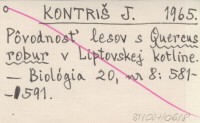 KONTRIŠ J. 1965.
Pôvodnosť lesov s Quercus
robur v Liptovskej kotline.
— Biológia 20, nr 8: 581-
-591.